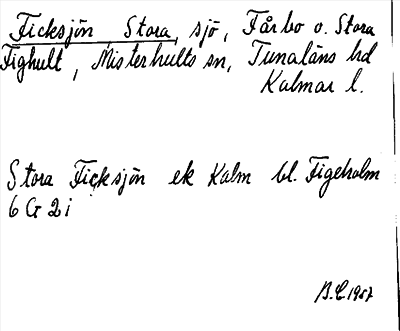 Ficksjön, Stora, sjö, Fårbo o. Stora
Fighult, Misterhults sn, Tunaläns hd
Kalmar l.
Stora Ficksjön ek Kalm bl. Figeholm
6 G 2 i
B.E. 1957